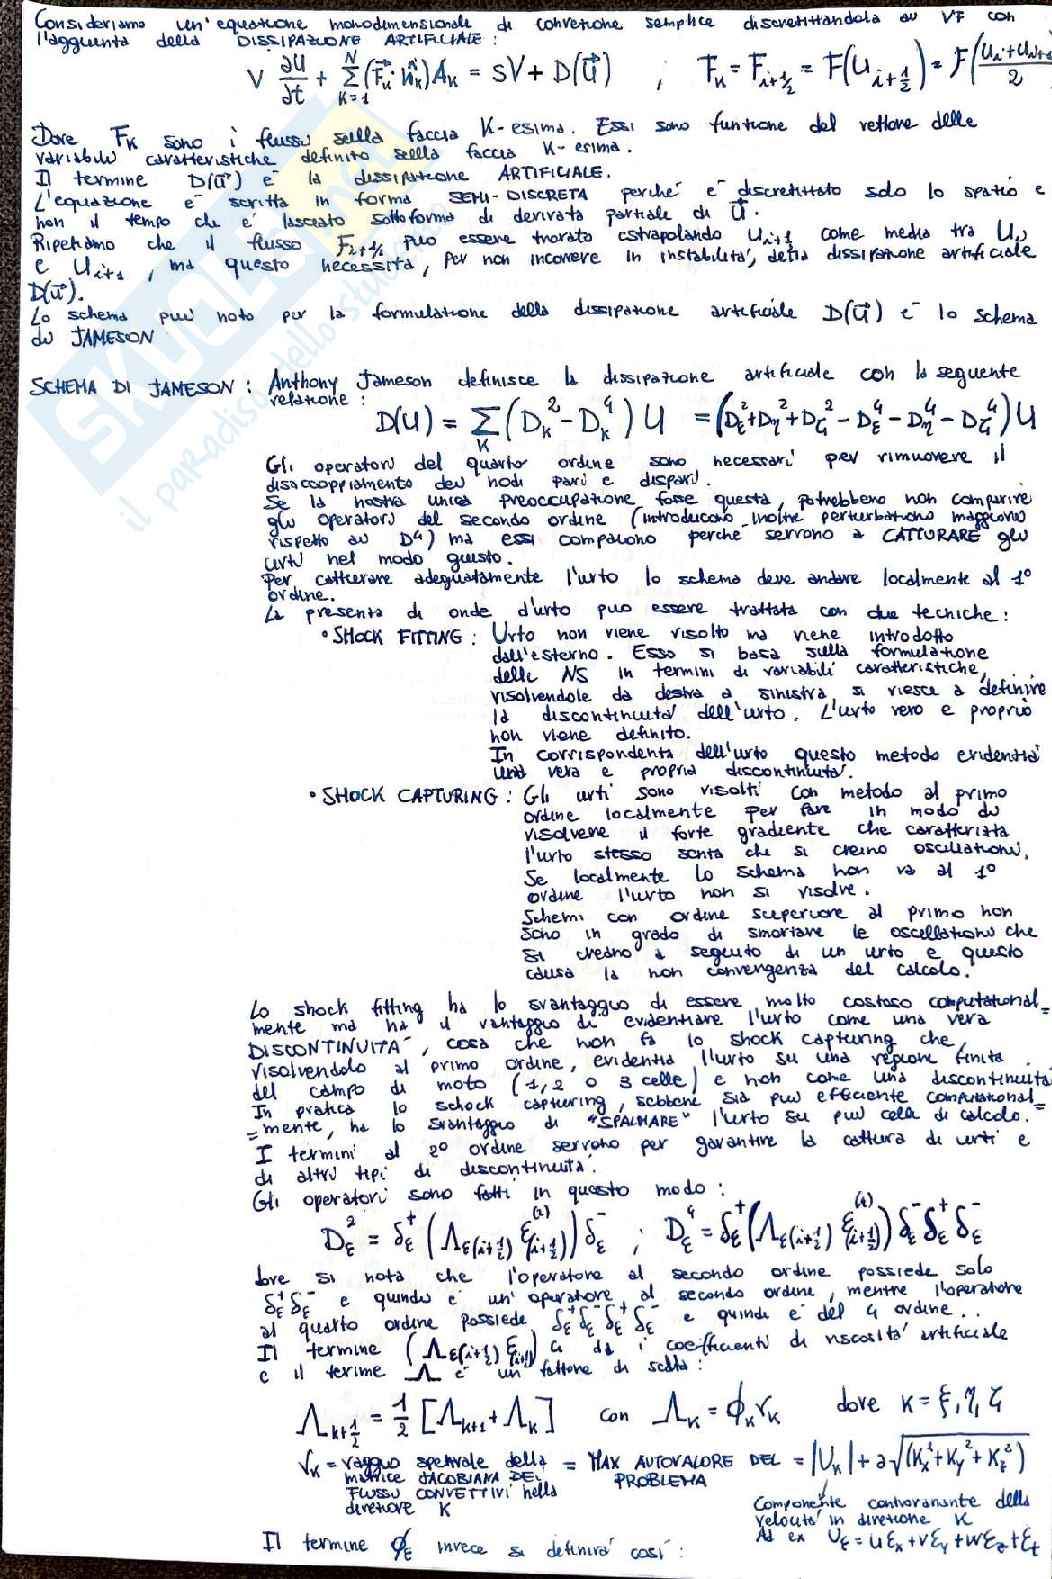 Consideriamo un'equazione monodimensionale di convezione semplice discretizzandola ai VF con
l'aggiunta della DISSIPAZIONE ARTIFICIALE:
V ∂U/∂t + Σ_{K=1}^{N} (F⃗_K · n̂_K) A_K = SV + D(U⃗) ; F_K = F_{i+1/2} = F(U_{i+1/2}) = F((U_i + U_{i+1})/2)
Dove F_K sono i flussi sulla faccia K-esima. Essi sono funzione del vettore delle
variabili caratteristiche definito sulla faccia K-esima.
Il termine D(U⃗) è la dissipazione ARTIFICIALE.
L'equazione è scritta in forma SEMI-DISCRETA perché è discretizzato solo lo spazio e
non il tempo che è lasciato sottoforma di derivata parziale di U⃗.
Ripetiamo che il flusso F_{i+1/2} può essere trovato estrapolando U_{i+1/2} come media tra U_i
e U_{i+1}, ma questo necessita, per non incorrere in instabilità, della dissipazione artificiale
D(U⃗).
Lo schema più noto per la formulazione della dissipazione artificiale D(U⃗) è lo schema
di JAMESON
SCHEMA DI JAMESON: Anthony Jameson definisce la dissipazione artificiale con la seguente
relazione:
D(U) = Σ_K (D_K^2 - D_K^4) U = (D_ξ^2 + D_η^2 + D_ζ^2 - D_ξ^4 - D_η^4 - D_ζ^4) U
Gli operatori del quarto ordine sono necessari per rimuovere il
disaccoppiamento dei nodi pari e dispari.
Se la nostra unica preoccupazione fosse questa, potrebbero non comparire
gli operatori del secondo ordine (introducono inoltre perturbazioni maggiori
rispetto ai D^4) ma essi compaiono perché servono a CATTURARE gli
urti nel modo giusto.
Per catturare adeguatamente l'urto lo schema deve andare localmente al 1°
ordine.
La presenza di onde d'urto può essere trattata con due tecniche:
• SHOCK FITTING: Urto non viene risolto ma viene introdotto
dall'esterno. Esso si basa sulla formulazione
delle NS in termini di variabili caratteristiche,
risolvendole da destra a sinistra si riesce a definire
la discontinuità dell'urto. L'urto vero e proprio
non viene definito.
In corrispondenza dell'urto questo metodo evidenzia
una vera e propria discontinuità.
• SHOCK CAPTURING: Gli urti sono risolti con metodo al primo
ordine localmente per fare in modo di
risolvere il forte gradiente che caratterizza
l'urto stesso senza che si creino oscillazioni.
Se localmente lo schema non va al 1°
ordine l'urto non si risolve.
Schemi con ordine superiore al primo non
sono in grado di smorzare le oscillazioni che
si creano a seguito di un urto e questo
causa la non convergenza del calcolo.
Lo shock fitting ha lo svantaggio di essere molto costoso computational=
mente ma ha il vantaggio di evidenziare l'urto come una vera
DISCONTINUITÀ, cosa che non fa lo shock capturing che,
risolvendolo al primo ordine, evidenzia l'urto su una regione finita
del campo di moto (1, 2 o 3 celle) e non come una discontinuità
In pratica lo schock capturing, sebbene sia più efficiente computational=
=mente, ha lo svantaggio di "SPALMARE" l'urto su più celle di calcolo.
I termini al 2° ordine servono per garantire la cattura di urti e
di altri tipi di discontinuità.
Gli operatori sono fatti in questo modo:
D_ξ^2 = δ_ξ^+ (Λ_{ξ(i+1/2)} ε^{(2)}_{(i+1/2)}) δ_ξ^- ; D_ξ^4 = δ_ξ^+ (Λ_{ξ(i+1/2)} ε^{(4)}_{(i+1/2)}) δ_ξ^- δ_ξ^+ δ_ξ^-
dove si nota che l'operatore al secondo ordine possiede solo
δ_ξ^+ δ_ξ^- e quindi è un'operatore al secondo ordine, mentre l'operatore
al quarto ordine possiede δ_ξ^+ δ_ξ^- δ_ξ^+ δ_ξ^- e quindi è del 4 ordine..
Il termine (Λ_{ξ(i+1/2)} ε_{(i+1/2)}) ci dà i coefficienti di viscosità artificiale
e il terime Λ è un fattore di scala:
Λ_{K+1/2} = 1/2 [Λ_{K+1} + Λ_K] con Λ_K = ϕ_K r_K dove K = ξ, η, ζ
r_K = raggio spettrale della = MAX AUTOVALORE DEL = |U_K| + a√(K_x^2 + K_y^2 + K_z^2)
matrice JACOBIANA DEI PROBLEMA
FLUSSI CONVETTIVI nella
direzione K
Componente controvariante della
velocità in direzione K
Ad ex U_ξ = uξ_x + vξ_y + wξ_z + ξ_t
Il termine ϕ_ξ invece si definirà così:
SKUOLA.net
il paradiso dello studente